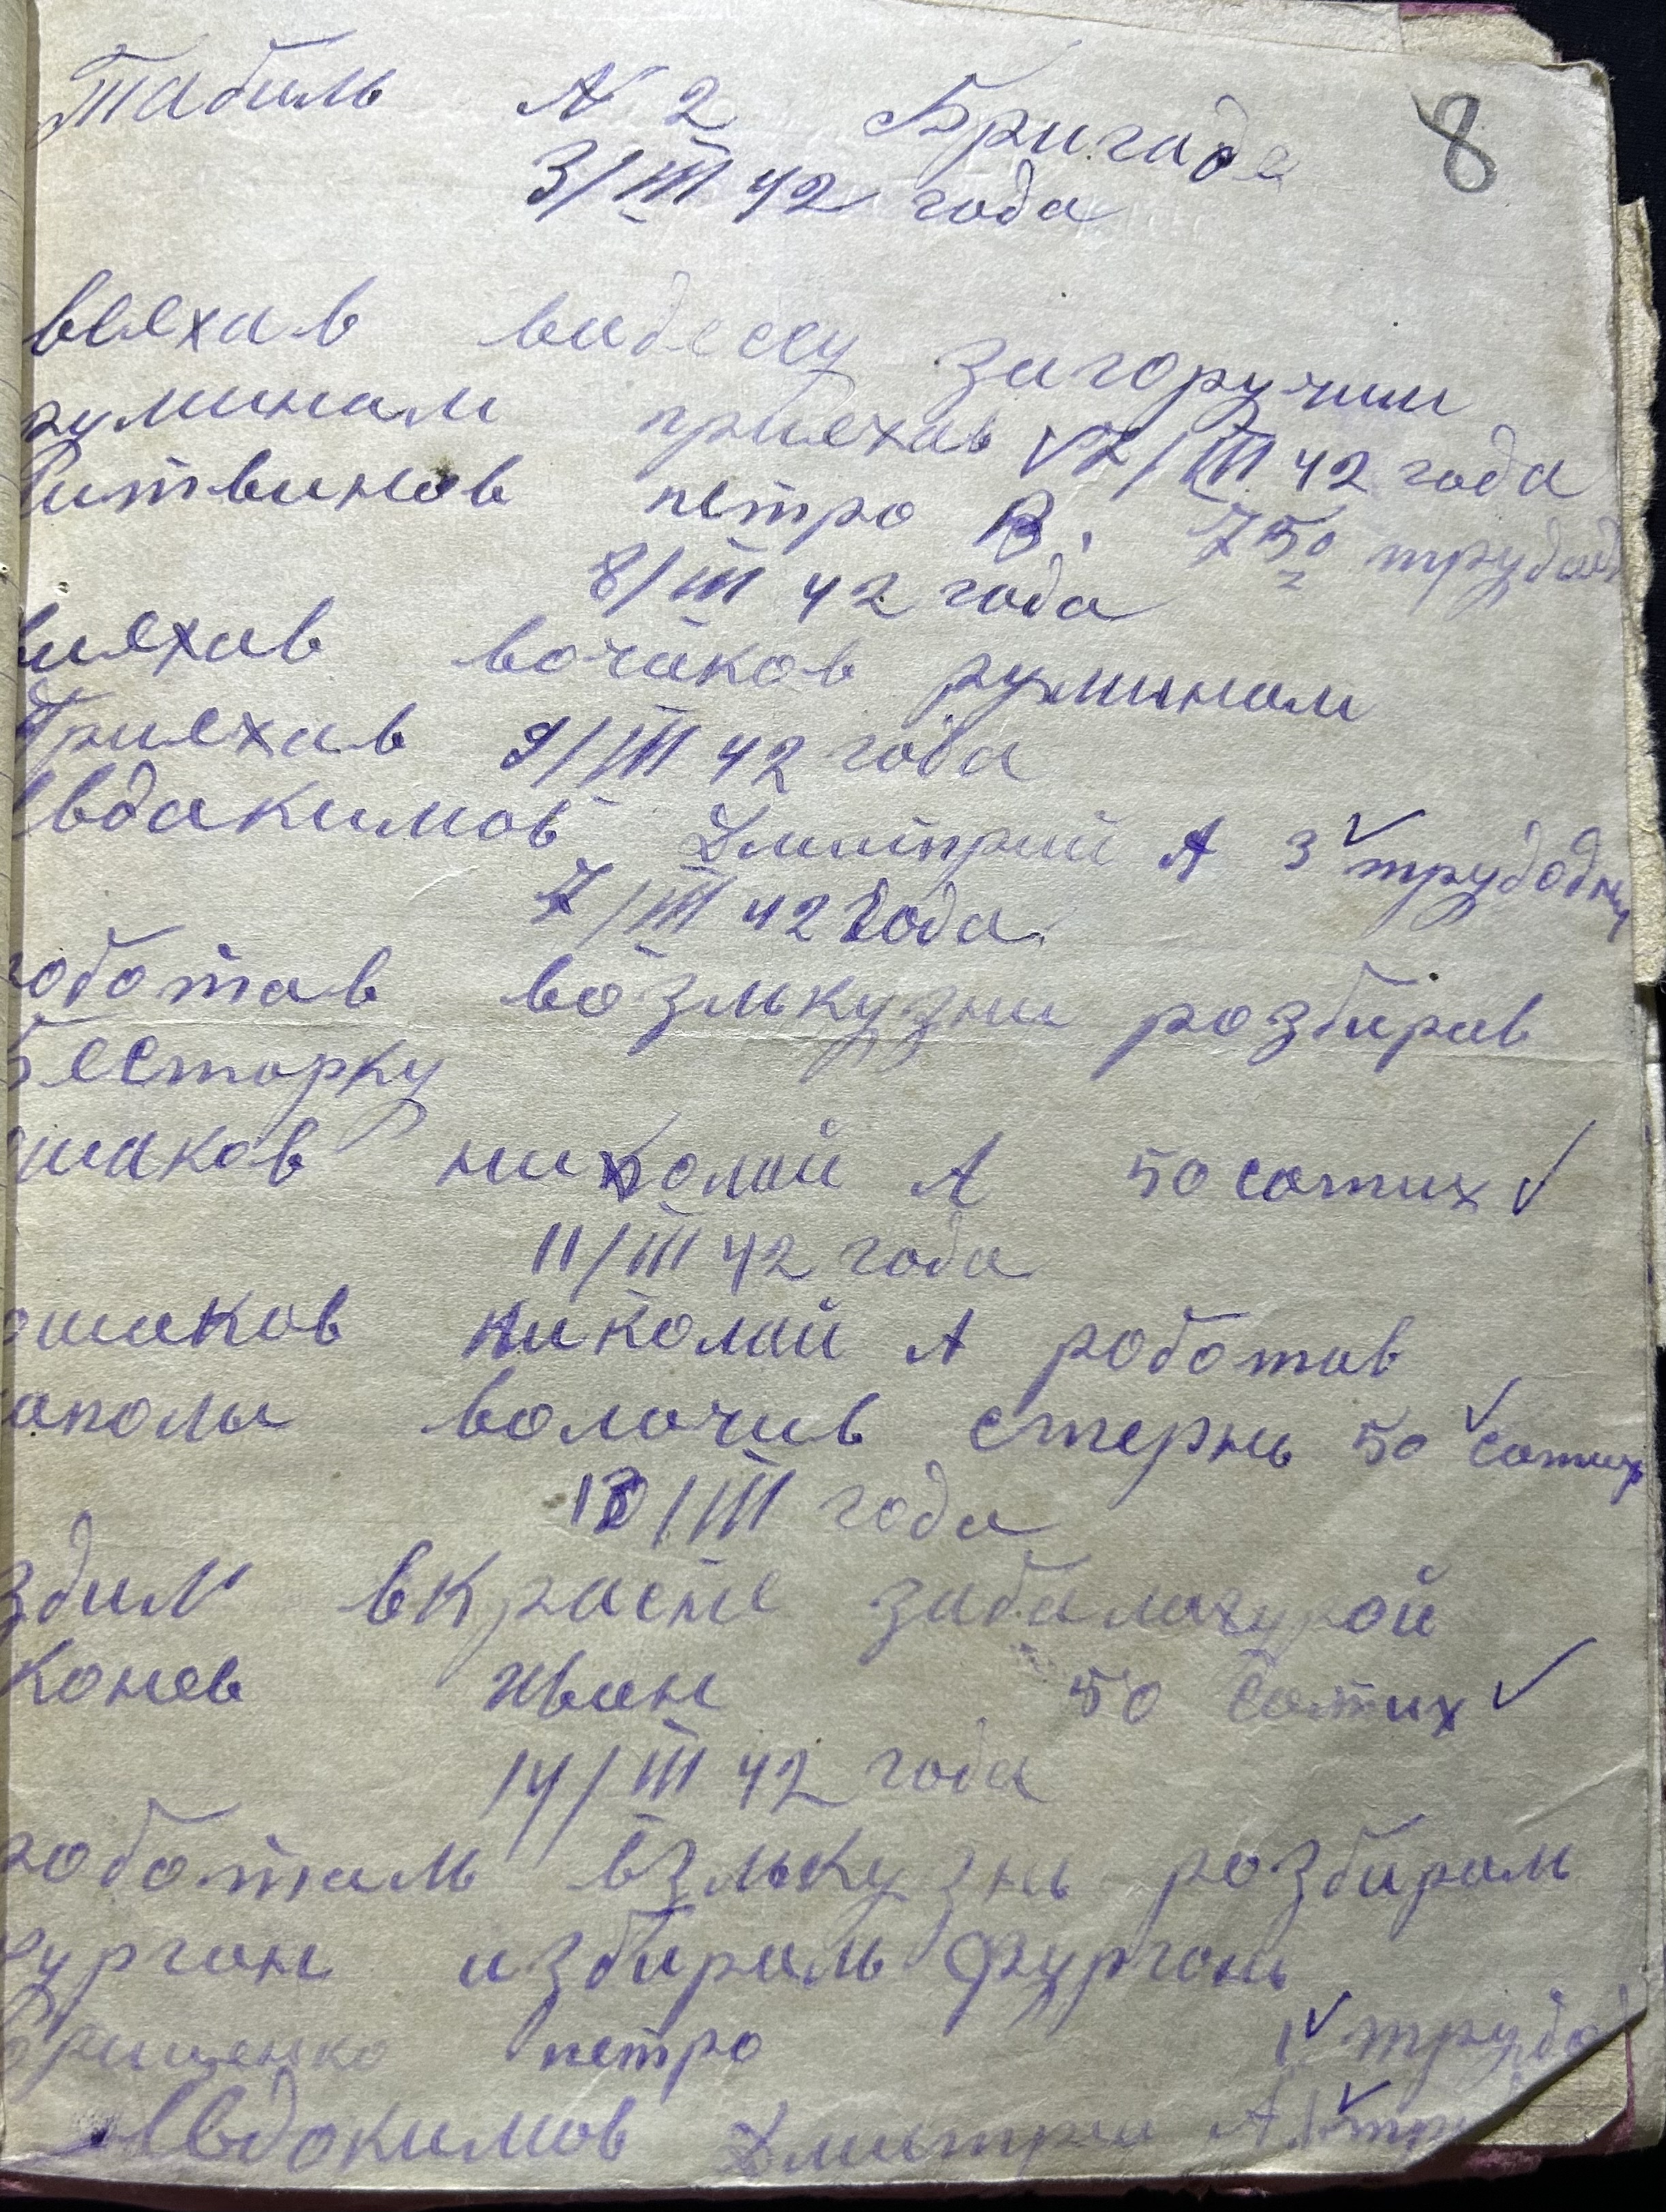 Табиль N 2 Бригаде 8
3/III 42 года
виехав вадессу загоручим
руминам приехав 7/III 42 года
Литвинов петро В. 750 трудод
8/III 42 года
виехав вочаков руминам
Приехав 9/III 42 года
Евдакимов Дмитрий А 3 трудодня
7/III 42 года
роботав возлькузни розбирав
есторку
шаков николай А 50 сотих
11/III 42 года
ошаков николай А роботав
аполи волочив стернь 50 сотих
III года
здил вКрасне
Конев Иван 50 сотих
14/III 42 года
роботаль взлькузнь розбираль
фургон избираль фургонь
рищенко петро 1 трудо
Овдокимов Дмитрии А 1 тру